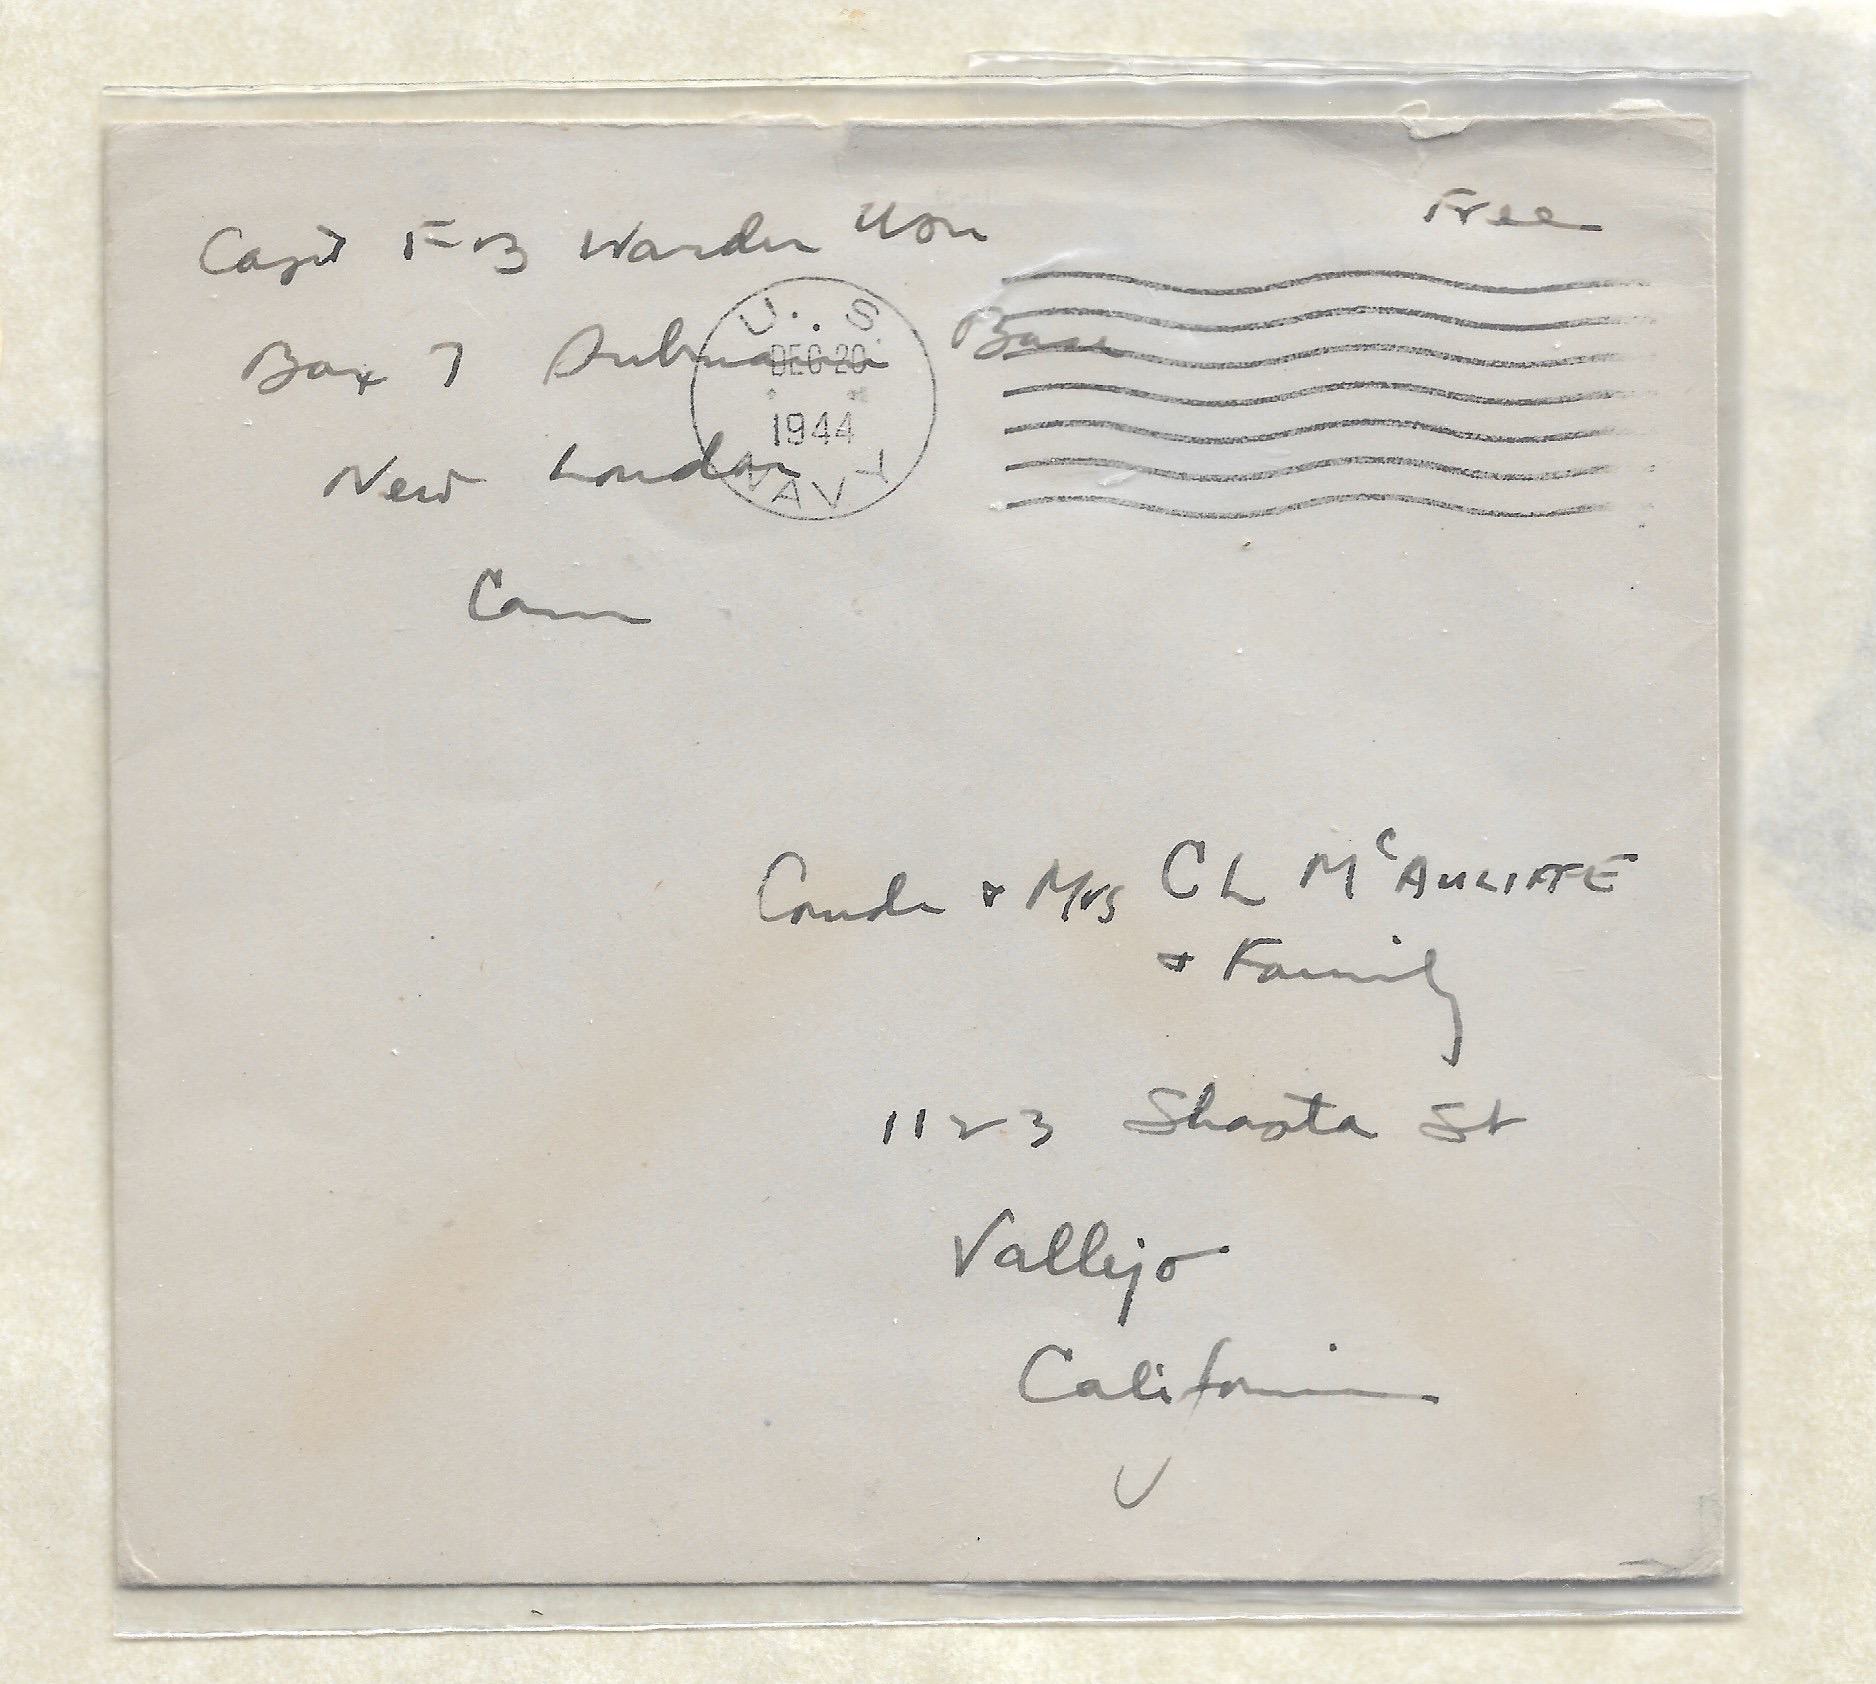 Capt F B Warder USN
Free
Box 7 Submarine Base
New London
Conn
U.S.
DEC 20
1944
NAVY
Comdr & Mrs CL McAULIFFE
& Family
1123 Shasta St
Vallejo
California